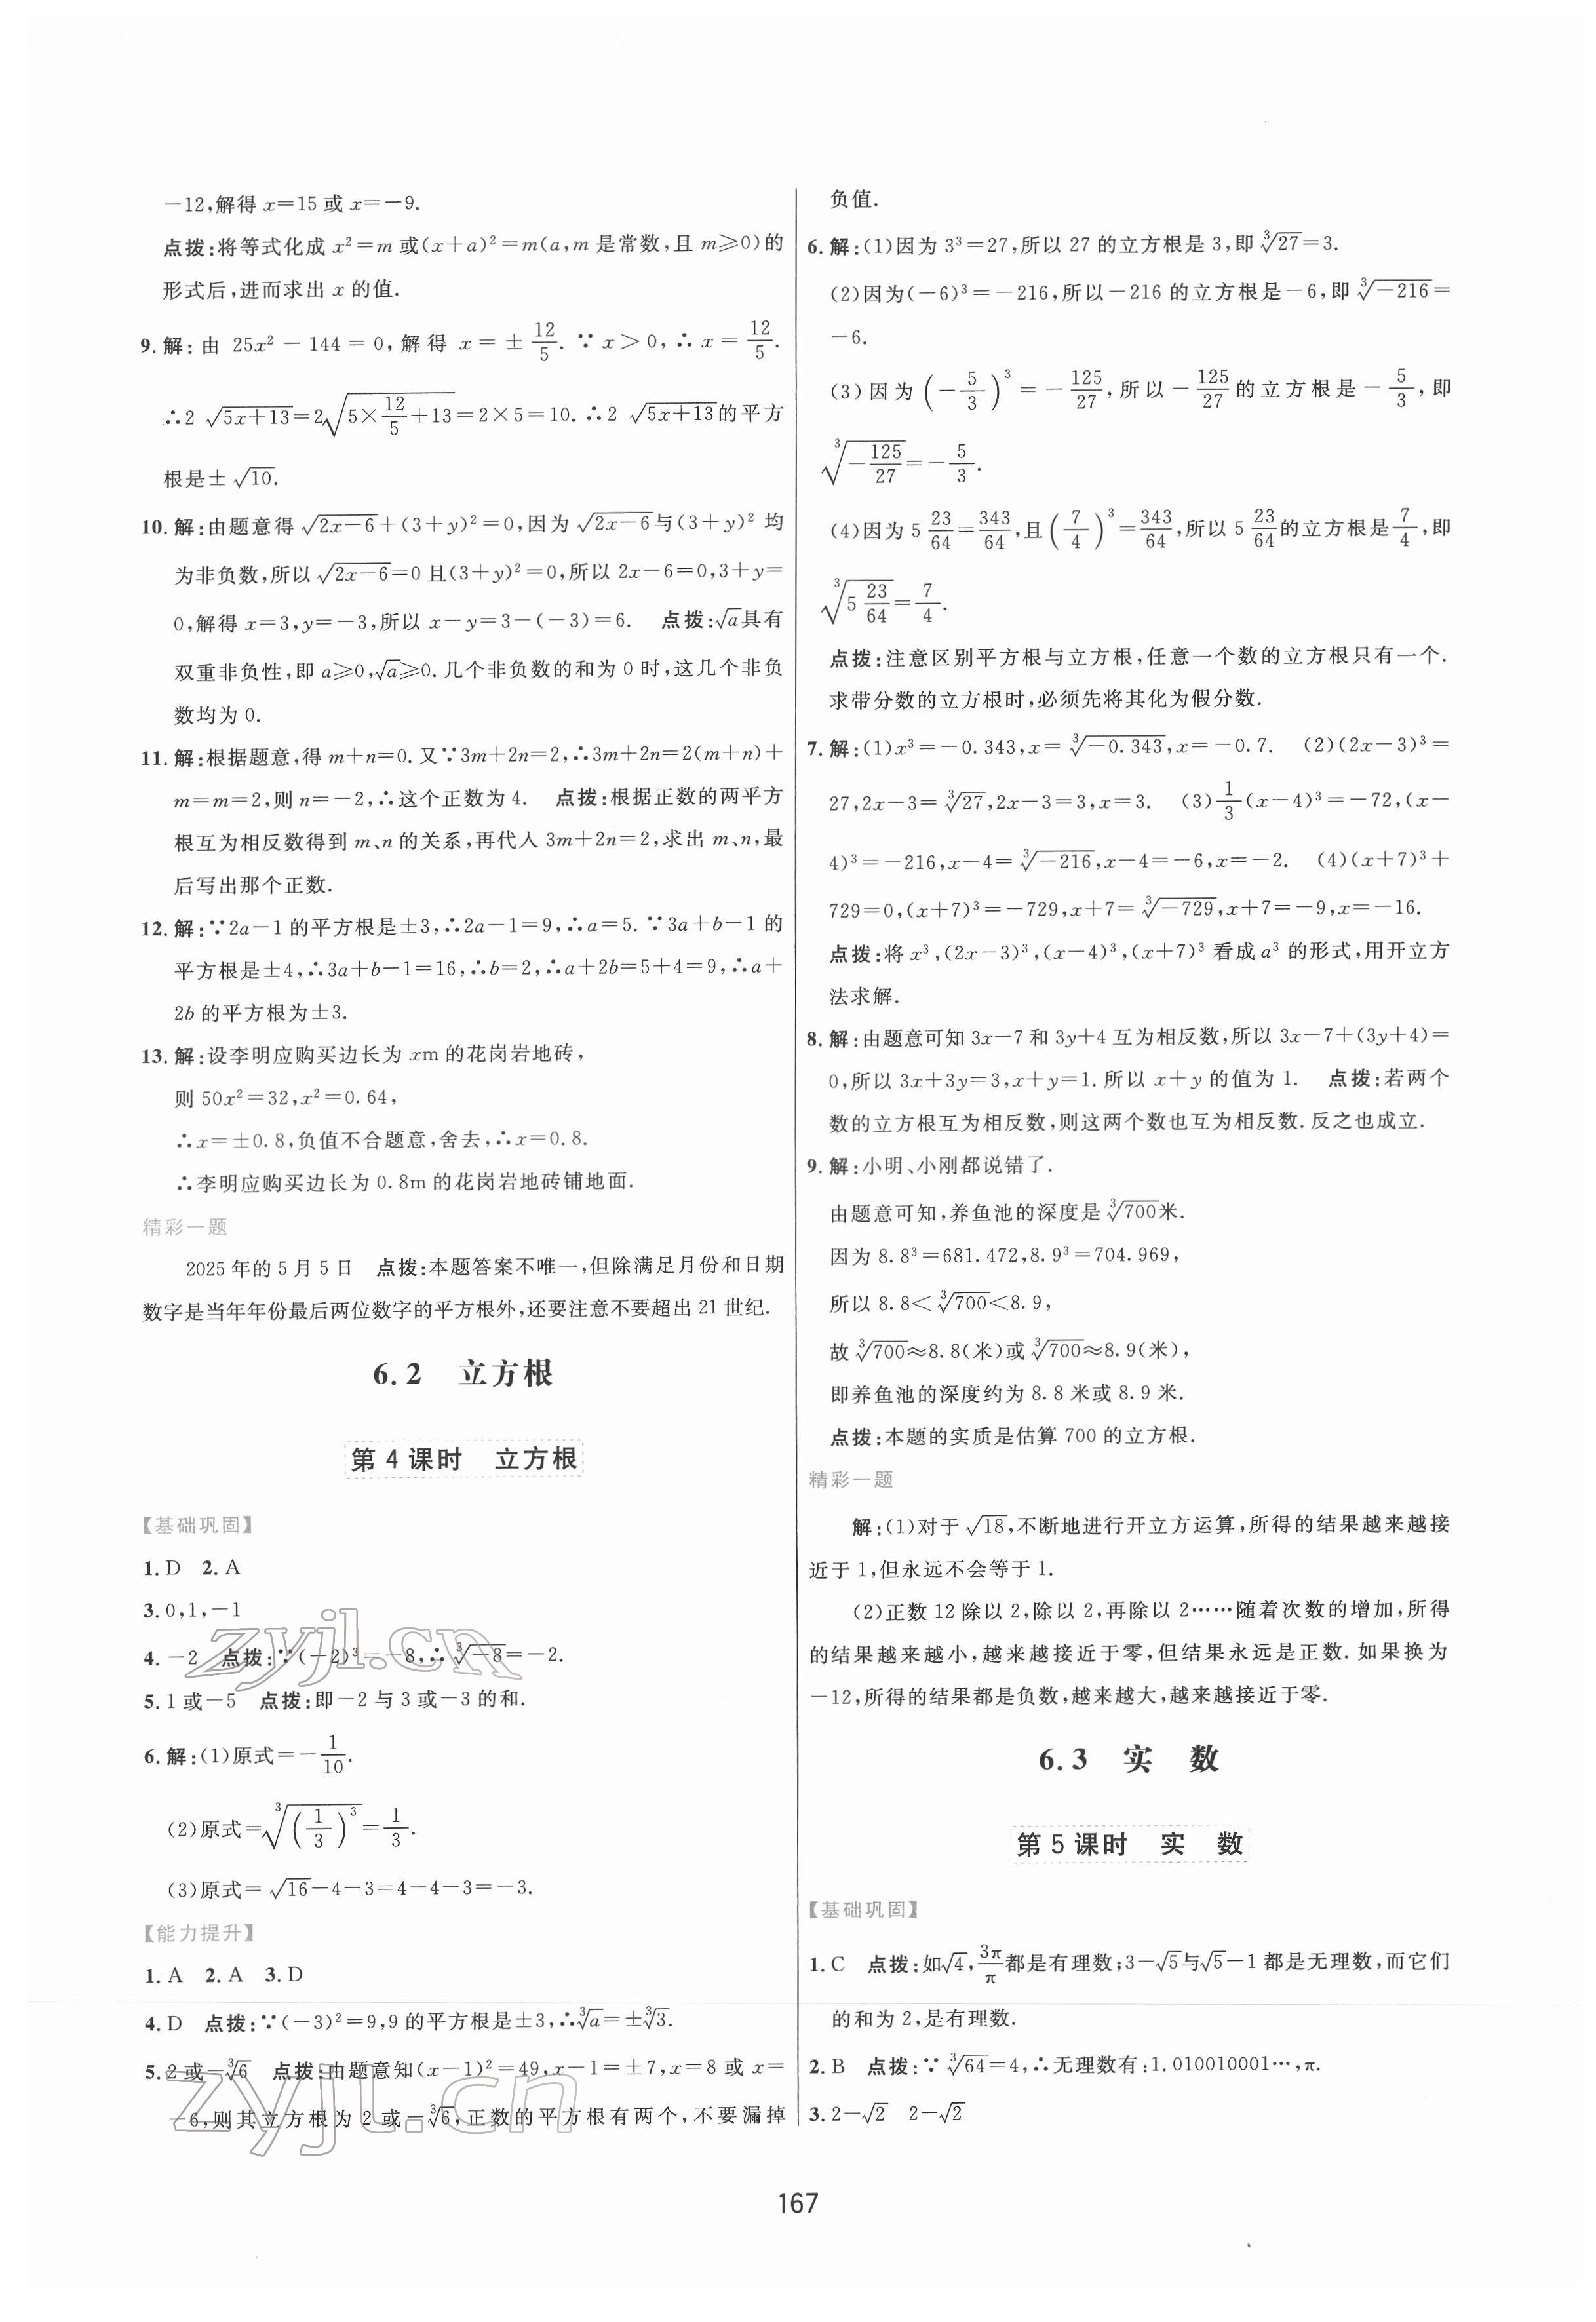 -12,解得 x=15 或 x=-9.
点拨:将等式化成 x²=m 或(x+a)²=m(a,m 是常数,且 m≥0)的
形式后,进而求出 x 的值.
9.解:由 25x²-144=0,解得 x=±12/5.∵x>0,∴x=12/5.
∴2√(5x+13)=2√(5×12/5+13)=2×5=10.∴2√(5x+13)的平方
根是±√10.
10.解:由题意得√(2x-6)+(3+y)²=0,因为√(2x-6)与(3+y)² 均
为非负数,所以√(2x-6)=0 且(3+y)²=0,所以 2x-6=0,3+y=
0,解得 x=3,y=-3,所以 x-y=3-(-3)=6. 点拨:√a具有
双重非负性,即 a≥0,√a≥0.几个非负数的和为 0 时,这几个非负
数均为 0.
11.解:根据题意,得 m+n=0.又∵3m+2n=2,∴3m+2n=2(m+n)+
m=m=2,则 n=-2,∴这个正数为 4. 点拨:根据正数的两平方
根互为相反数得到 m、n 的关系,再代入 3m+2n=2,求出 m、n,最
后写出那个正数.
12.解:∵2a-1 的平方根是±3,∴2a-1=9,∴a=5.∵3a+b-1 的
平方根是±4,∴3a+b-1=16,∴b=2,∴a+2b=5+4=9,∴a+
2b 的平方根为±3.
13.解:设李明应购买边长为 xm 的花岗岩地砖,
则 50x²=32,x²=0.64,
∴x=±0.8,负值不合题意,舍去,∴x=0.8.
∴李明应购买边长为 0.8m 的花岗岩地砖铺地面.
精彩一题
2025 年的 5 月 5 日 点拨:本题答案不唯一,但除满足月份和日期
数字是当年年份最后两位数字的平方根外,还要注意不要超出 21 世纪.
6.2 立方根
第 4 课时 立方根
【基础巩固】
1.D 2.A
3.0,1,-1
4.-2 点拨:∵(-2)³=-8,∴∛-8=-2.
5.1 或-5 点拨:即-2 与 3 或-3 的和.
6.解:(1)原式=-1/10.
(2)原式=∛(1/3)³=1/3.
(3)原式=√16-4-3=4-4-3=-3.
【能力提升】
1.A 2.A 3.D
4.D 点拨:∵(-3)²=9,9 的平方根是±3,∴∛a=±∛3.
5.2 或-∛6 点拨:由题意知(x-1)²=49,x-1=±7,x=8 或 x=
-6,则其立方根为 2 或-∛6,正数的平方根有两个,不要漏掉
zyjl.cn
zyjl.cn
负值.
6.解:(1)因为 3³=27,所以 27 的立方根是 3,即∛27=3.
(2)因为(-6)³=-216,所以-216 的立方根是-6,即∛-216=
-6.
(3)因为(-5/3)³=-125/27,所以-125/27的立方根是-5/3,即
∛(-125/27)=-5/3.
(4)因为 5 23/64=343/64,且(7/4)³=343/64,所以 5 23/64的立方根是7/4,即
∛(5 23/64)=7/4.
点拨:注意区别平方根与立方根,任意一个数的立方根只有一个.
求带分数的立方根时,必须先将其化为假分数.
7.解:(1)x³=-0.343,x=∛-0.343,x=-0.7. (2)(2x-3)³=
27,2x-3=∛27,2x-3=3,x=3. (3)1/3(x-4)³=-72,(x-
4)³=-216,x-4=∛-216,x-4=-6,x=-2. (4)(x+7)³+
729=0,(x+7)³=-729,x+7=∛-729,x+7=-9,x=-16.
点拨:将 x³,(2x-3)³,(x-4)³,(x+7)³ 看成 a³ 的形式,用开立方
法求解.
8.解:由题意可知 3x-7 和 3y+4 互为相反数,所以 3x-7+(3y+4)=
0,所以 3x+3y=3,x+y=1.所以 x+y 的值为 1. 点拨:若两个
数的立方根互为相反数,则这两个数也互为相反数.反之也成立.
9.解:小明、小刚都说错了.
由题意可知,养鱼池的深度是∛700米.
因为 8.8³=681.472,8.9³=704.969,
所以 8.8<∛700<8.9,
故∛700≈8.8(米)或∛700≈8.9(米),
即养鱼池的深度约为 8.8 米或 8.9 米.
点拨:本题的实质是估算 700 的立方根.
精彩一题
解:(1)对于√18,不断地进行开立方运算,所得的结果越来越接
近于 1,但永远不会等于 1.
(2)正数 12 除以 2,除以 2,再除以 2……随着次数的增加,所得
的结果越来越小,越来越接近于零,但结果永远是正数.如果换为
-12,所得的结果都是负数,越来越大,越来越接近于零.
6.3 实 数
第 5 课时 实 数
【基础巩固】
1.C 点拨:如√4,3π/π都是有理数;3-√5与√5-1 都是无理数,而它们
的和为 2,是有理数.
2.B 点拨:∵∛64=4,∴无理数有:1.010010001…,π.
3.2-√2 2-√2
167